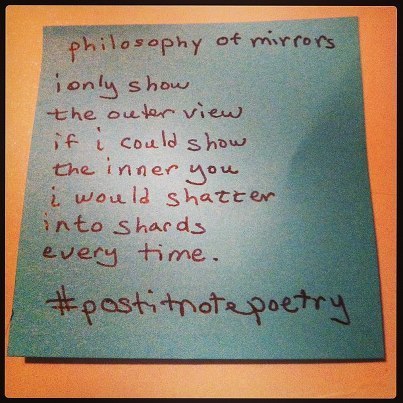 philosophy of mirrors
i only show
the outer view
if i could show
the inner you
i would shatter
into shards
every time.
#postitnotepoetry